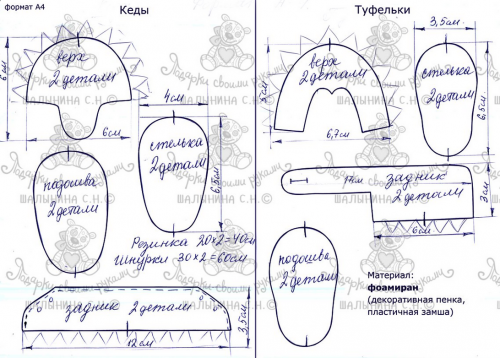 формат А4
Кеды
верх
2 детали
6 см
6 см
4 см
стелька
2 детали
6,5 см
подошва
2 детали
Резинка 20х2=40см
Шнурки 30х2=60см
задник 2 детали
3,5 см
12 см
Туфельки
3,5 см.
верх
2 детали
5 см
6,7 см.
стелька
2 детали
6,5 см.
17 см
задник
2 детали
3 см
6 см
подошва
2 детали
Материал:
фоамиран
(декоративная пенка,
пластичная замша)
Подарки своими руками
ШАЛЬНИНА С.Н.